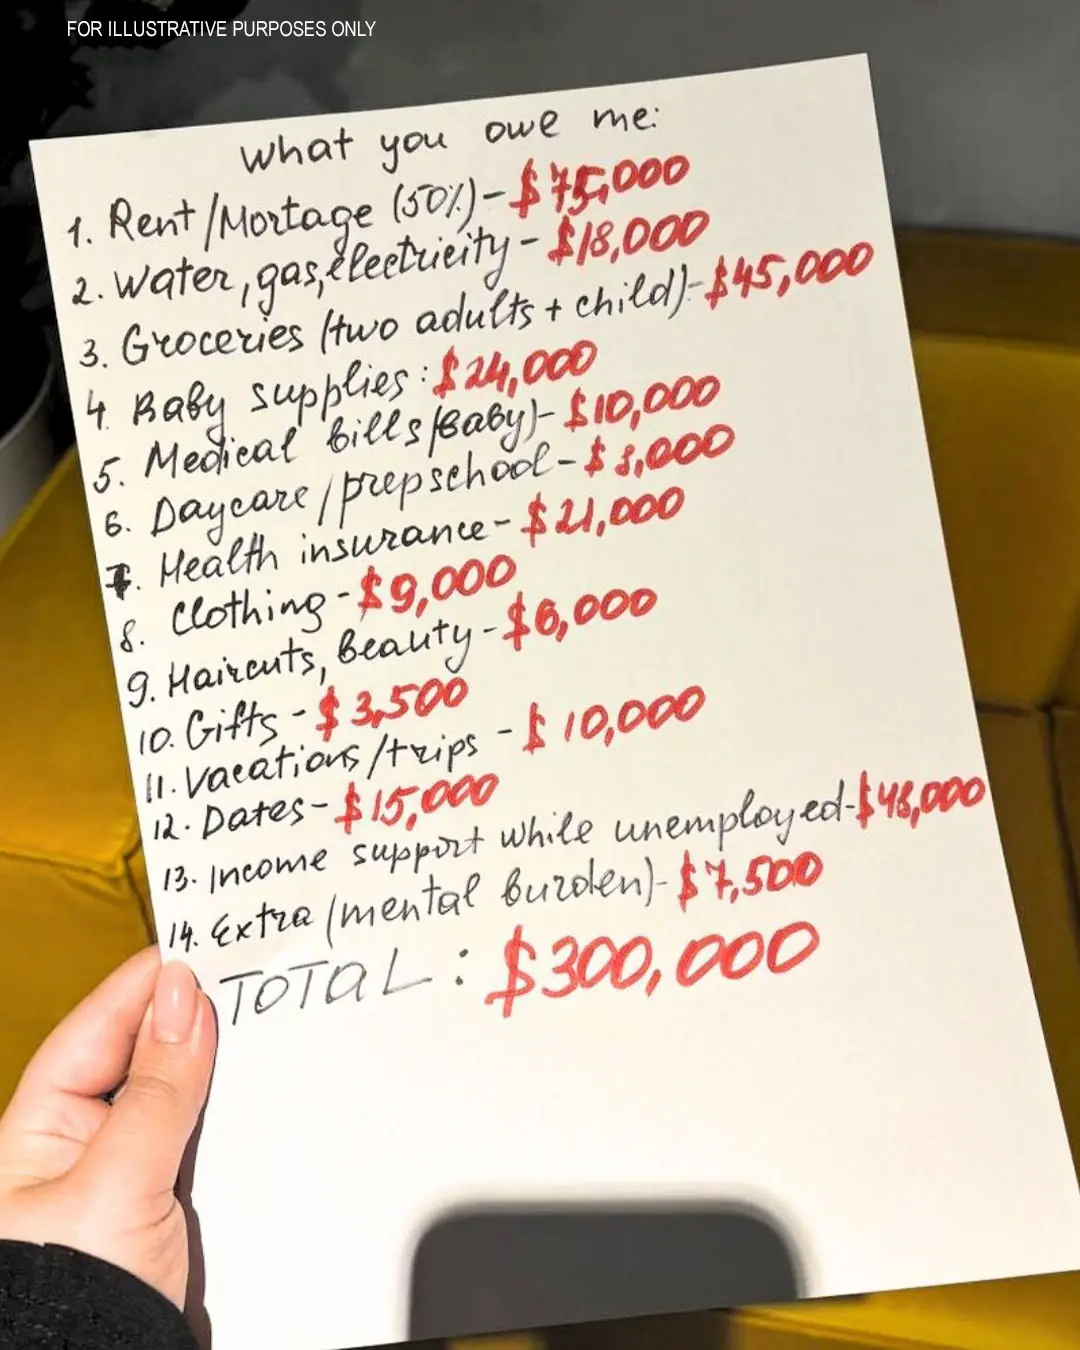 FOR ILLUSTRATIVE PURPOSES ONLY
What you owe me:
1. Rent/Mortage (50%) - $75,000
2. Water, gas, electricity - $18,000
3. Groceries (two adults + child) - $45,000
4. Baby supplies: $24,000
5. Medical bills (Baby) - $10,000
6. Daycare/prepschool - $8,000
7. Health insurance - $21,000
8. Clothing - $9,000
9. Haircuts, Beauty - $6,000
10. Gifts - $3,500
11. Vacations/trips - $10,000
12. Dates - $15,000
13. Income support while unemployed - $48,000
14. Extra (mental burden) - $7,500
TOTAL: $300,000